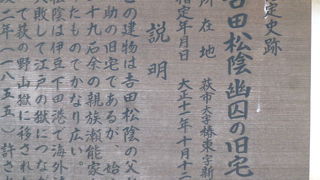 定史跡
吉田松陰幽囚の旧宅
所在地 萩市大字椿東字新
指定年月日 大正十一年十月十二
説明
この建物は吉田松陰の父杉
助の旧宅であるが、始
十九石余の親族瀬能家
たものでかなり広い。
松陰は伊豆下田港で海外
敗して江戸の獄につな
て萩の野山獄に移され
二年(一八五五)許され